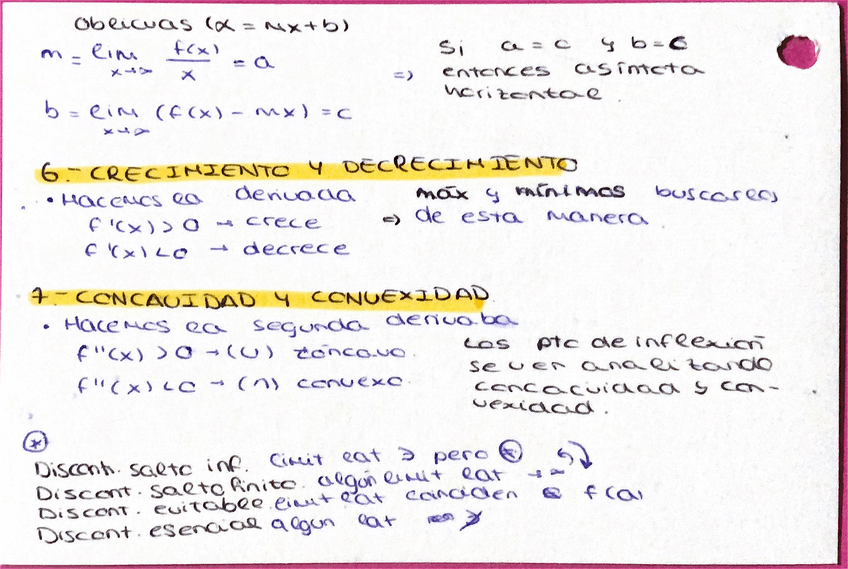 OBLICUAS (x = mx+b)
m = lim x→∞ f(x)/x = a
b = lim x→∞ (f(x) - mx) = c
Si a = c y b = c
=> entonces asíntota
horizontal.
6.- CRECIMIENTO Y DECRECIMIENTO
• Hacemos la derivada
f'(x) > 0 → crece
f'(x) < 0 → decrece
máx y mínimos buscarlos
=> de esta manera.
7.- CONCAVIDAD Y CONVEXIDAD.
• Hacemos la segunda derivaba
f''(x) > 0 → (∪) cóncavo.
f''(x) < 0 → (∩) convexo.
Los pto de inflexión
se ven analizando
concavidad y con-
vexidad.
*
Discont. salto inf. limit lat ∃ pero
Discont. salto finito. algún limit lat → ∞
Discont. evitable. limit lat coinciden f(a)
Discont. esencial algún lat ∄